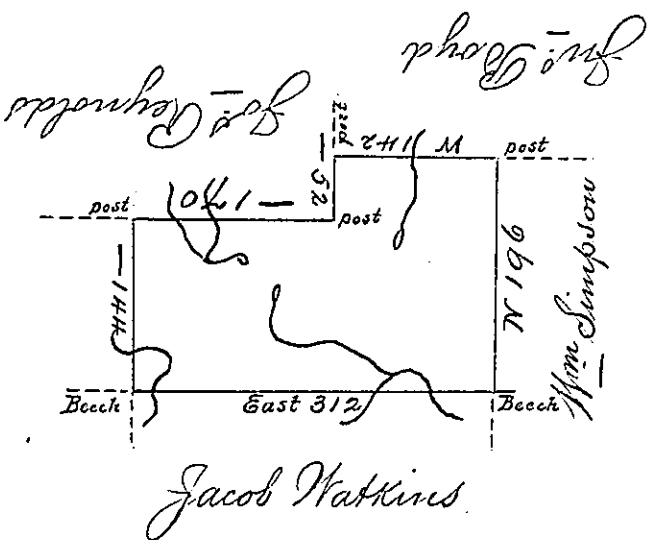 Jnº Boyd
Joˢ Reynolds
post
W 142
post
— 52
post
— 170
post
— 144
N 196
Wm Simpson
Beech
East 312
Beech
Jacob Watkins